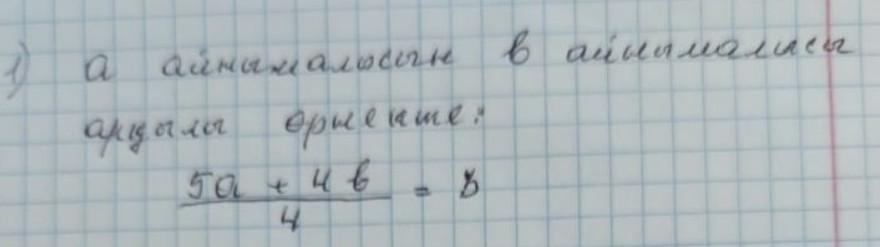 1) а айнымалысын в айнымалысы
арқылы өрнекте:
5а + 4в / 4 = 8